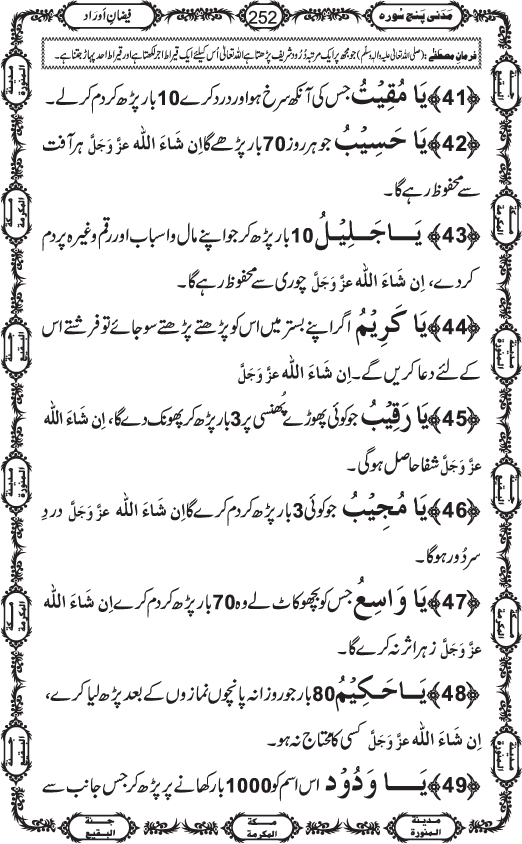 مَدَنی پنج سورہ
252
فیضانِ اَوراد
فرمانِ مصطفٰی : (صلی اللہ تعالیٰ علیہ والہٖ وسلّم) جو مجھ پر ایک مرتبہ دُرُود شریف پڑھتا ہے اللہ تعالیٰ اُس کیلئے ایک قیراط اجر لکھتا ہے اور قیراط احد پہاڑ جتنا ہے۔
﴿41﴾ یَا مُقِیْتُ جس کی آنکھ سرخ ہو اور درد کرے 10 بار پڑھ کر دم کرلے۔
﴿42﴾ یَا حَسِیْبُ جو ہر روز 70 بار پڑھے گا اِن شَاءَ اللہ عزَّ وَجَلَّ ہر آفت
سے محفوظ رہے گا۔
﴿43﴾ یَا جَلِیْلُ 10 بار پڑھ کر جو اپنے مال و اسباب اور رقم وغیرہ پر دم
کردے، اِن شَاءَ اللہ عزَّ وَجَلَّ چوری سے محفوظ رہے گا۔
﴿44﴾ یَا کَرِیْمُ اگر اپنے بستر میں اس کو پڑھتے پڑھتے سو جائے تو فرشتے اس
کے لئے دعا کریں گے۔ اِن شَاءَ اللہ عزَّ وَجَلَّ
﴿45﴾ یَا رَقِیْبُ جو کوئی پھوڑے پُھنسی پر 3 بار پڑھ کر پھونک دے گا، اِن شَاءَ اللہ
عزَّ وَجَلَّ شفا حاصل ہوگی۔
﴿46﴾ یَا مُجِیْبُ جو کوئی 3 بار پڑھ کر دم کرے گا اِن شَاءَ اللہ عزَّ وَجَلَّ دردِ
سر دُور ہوگا۔
﴿47﴾ یَا وَاسِعُ جس کو بچھو کاٹ لے وہ 70 بار پڑھ کر دم کرے اِن شَاءَ اللہ
عزَّ وَجَلَّ زہر اثر نہ کرے گا۔
﴿48﴾ یَا حَکِیْمُ 80 بار جو روزانہ پانچوں نمازوں کے بعد پڑھ لیا کرے،
اِن شَاءَ اللہ عزَّ وَجَلَّ کسی کا محتاج نہ ہو۔
﴿49﴾ یَا وَدُوْدُ اس اسم کو 1000 بار کھانے پر پڑھ کر جس جانب سے
جنة البقيع
مكة المكرمة
مدينة المنورة